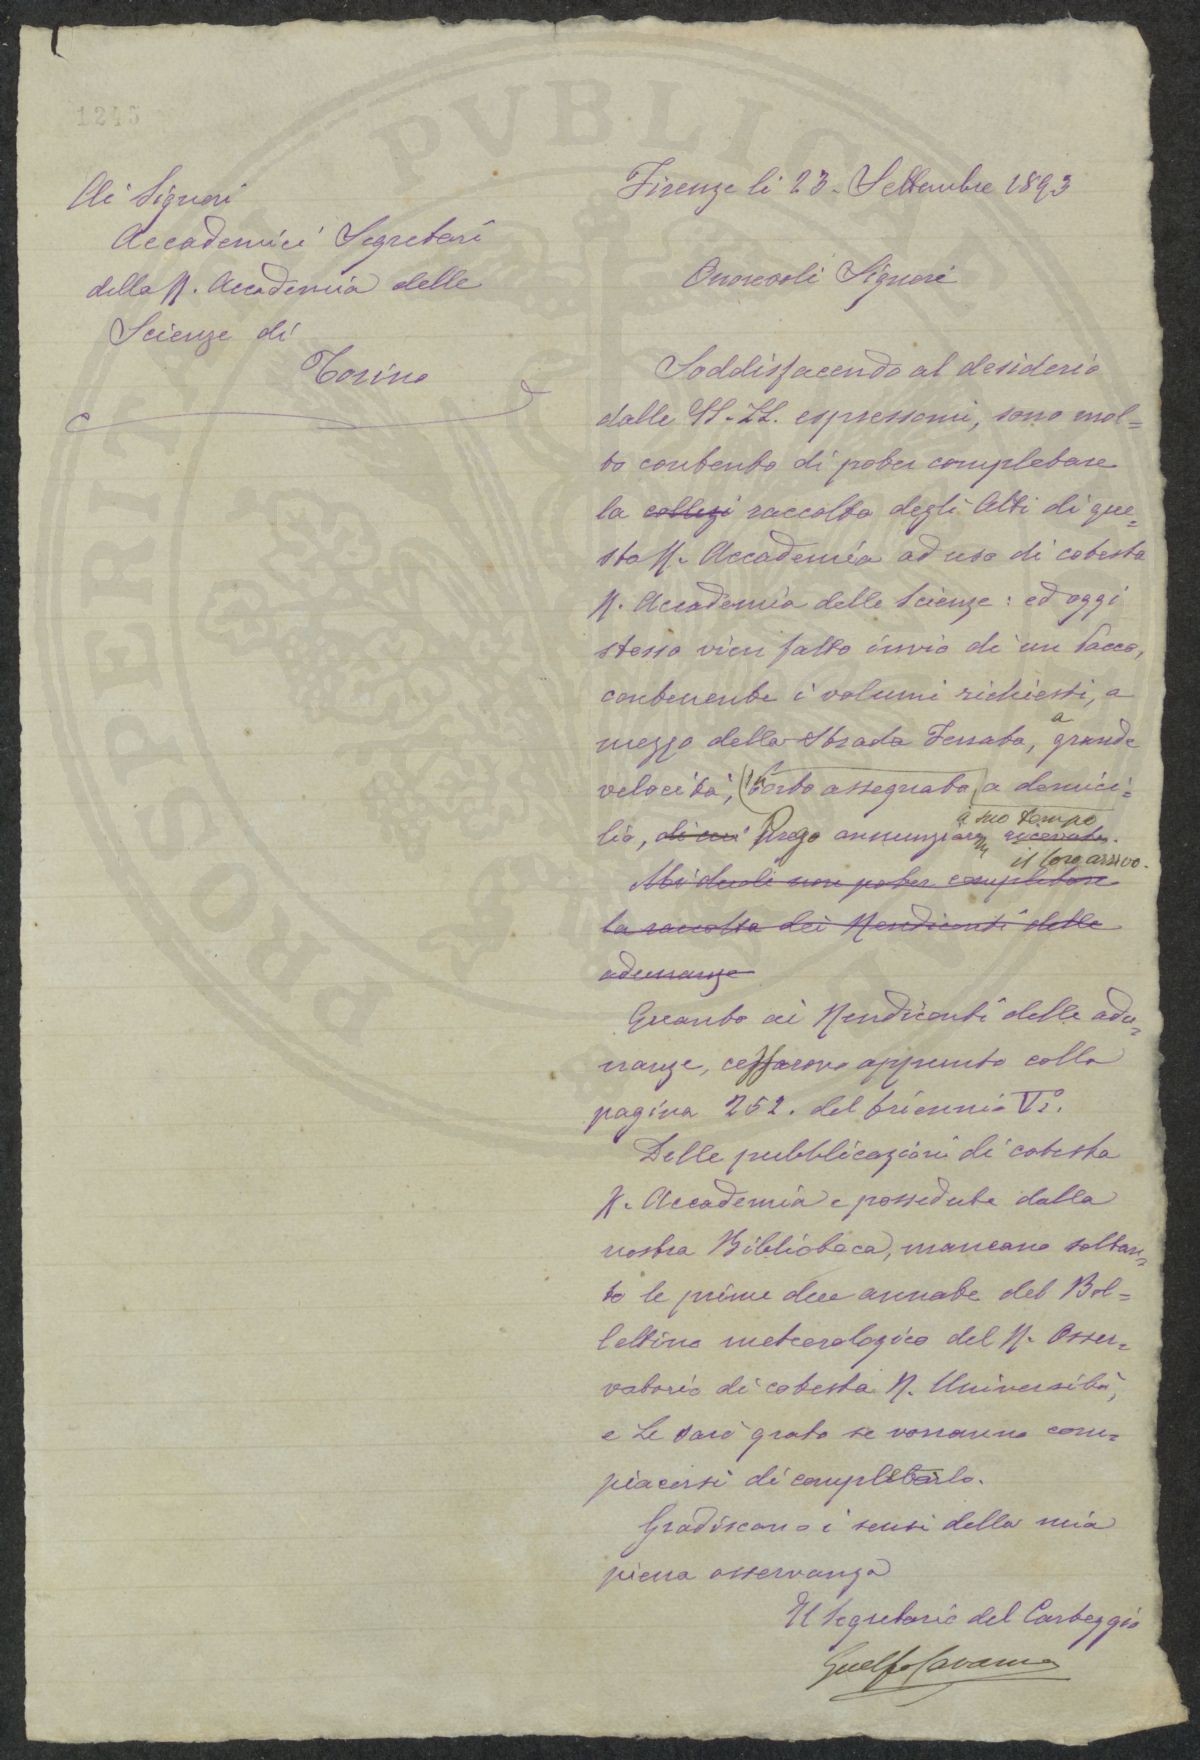 1245
Ai Signori
Accademici Segretari
della R. Accademia delle
Scienze di
Torino
Firenze li 23. Settembre 1893
Onorevoli Signori
Soddisfacendo al desiderio
dalle SS. LL. espressomi, sono mol=
to contento di poter completare
la collezi raccolta degli Atti di que=
sta R. Accademia ad uso di cotesta
R. Accademia delle Scienze: ed oggi
stesso vien fatto invio di un Pacco,
contenente i volumi richiesti, a
mezzo della Strada Ferrata, a grande
velocità, (in Porto assegnato, a domici=
lio, di cui Prego annunziarmi ricevuta. a suo tempo
il loro arrivo.
Mi duole non poter completare
la raccolta dei Rendiconti delle
adunanze
Quanto ai Rendiconti delle adu=
nanze, cessarono appunto colla
pagina 252. del triennio V°.
Delle pubblicazioni di cotesta
R. Accademia e possedute dalla
nostra Biblioteca, mancano soltan=
to le prime due annate del Bol=
lettino meteorologico del R. Osser=
vatorio di cotesta R. Università,
e Le sarò grato se vorranno com=
piacersi di completarlo.
Gradiscano i sensi della mia
piena osservanza
Il Segretario del Carteggio
Guelfo Cavanna
PROSPERITATI PVBLICAE